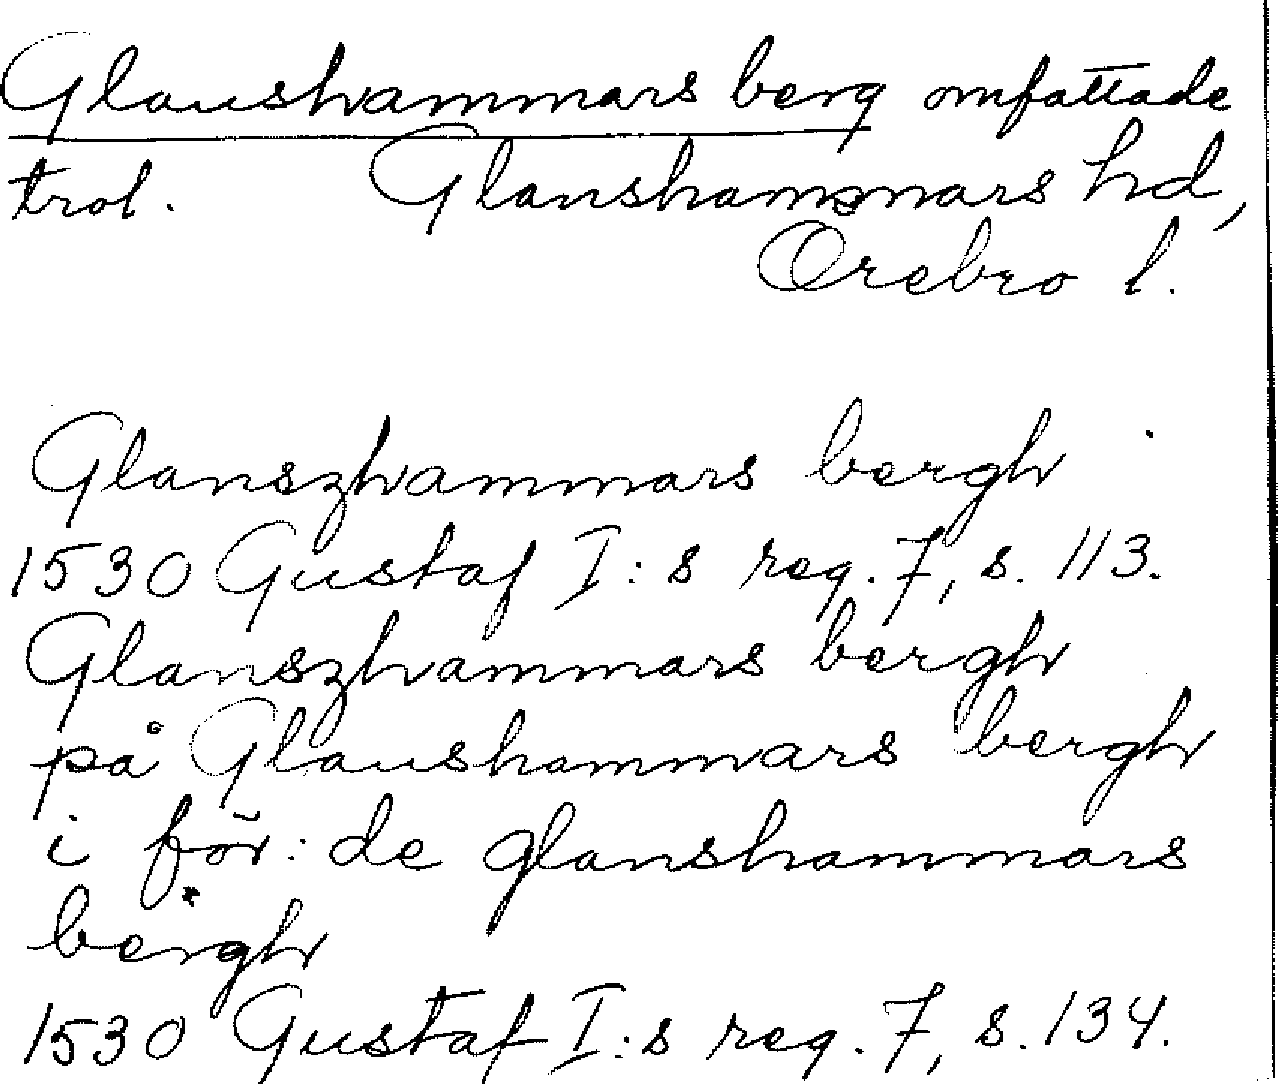 Glanshammars berg omfattade
trol. Glanshammars hd,
Örebro l.
Glanszhammars bergh
1530 Gustaf I:s reg. 7, s. 113.
Glanszhammars bergh
på Glanshammars bergh
i för: de glanshammars
bergh
1530 Gustaf I:s reg. 7, s. 134.